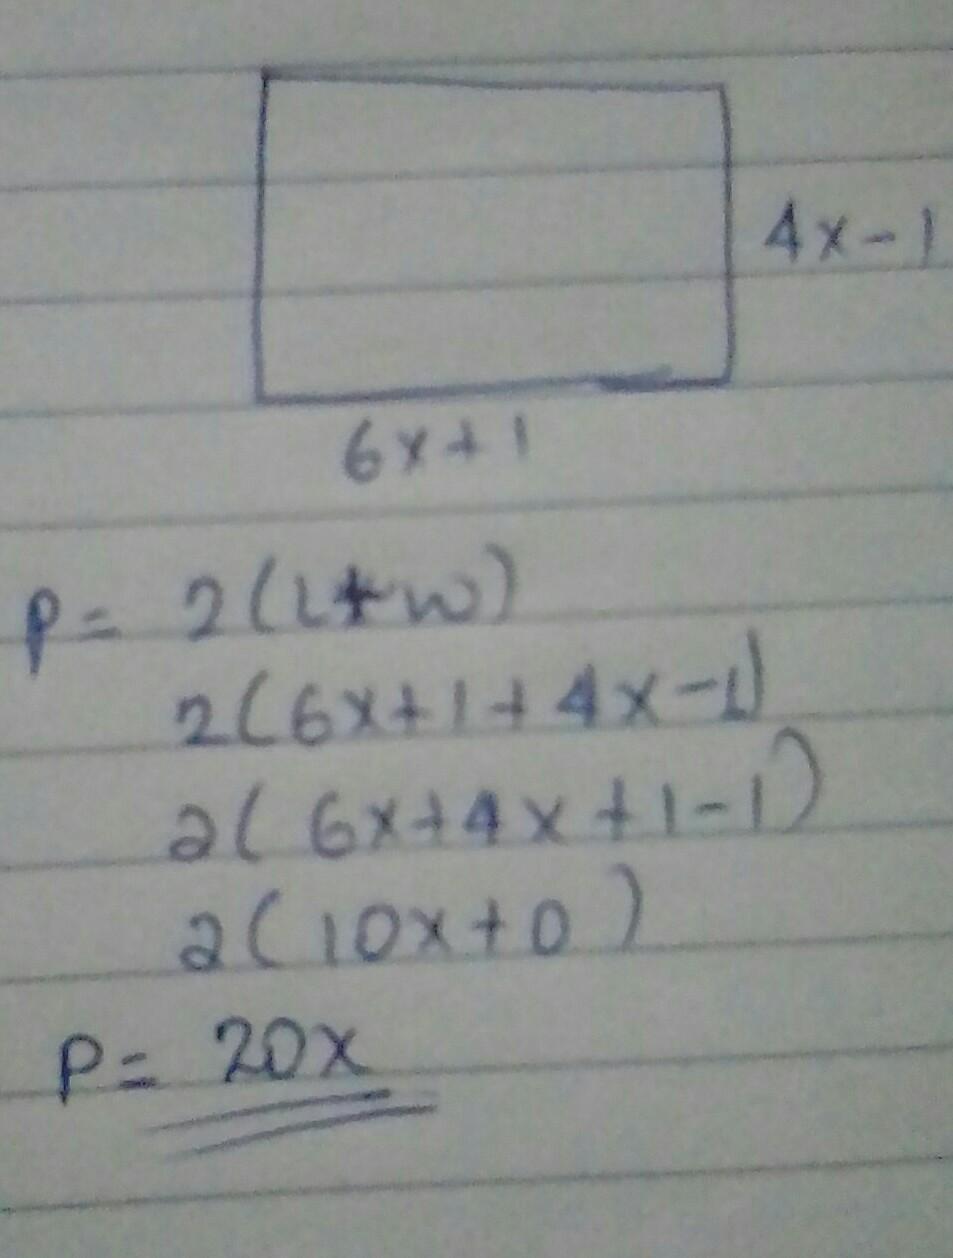 4x-1
6x+1
P= 2(L+w)
2(6x+1+4x-1)
2(6x+4x+1-1)
2(10x+0)
P= 20x